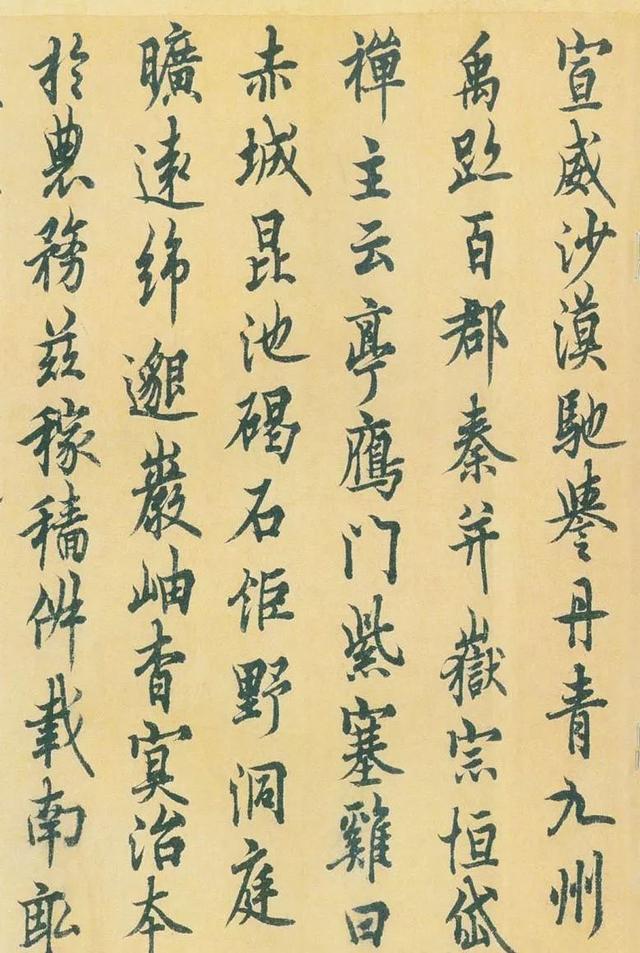 宣威沙漠馳譽丹青九州
禹跡百郡秦并嶽宗恒岱
禪主云亭鴈門紫塞雞田
赤城昆池碣石鉅野洞庭
曠遠綿邈巖岫杳冥治本
於農務茲稼穡俶載南畝